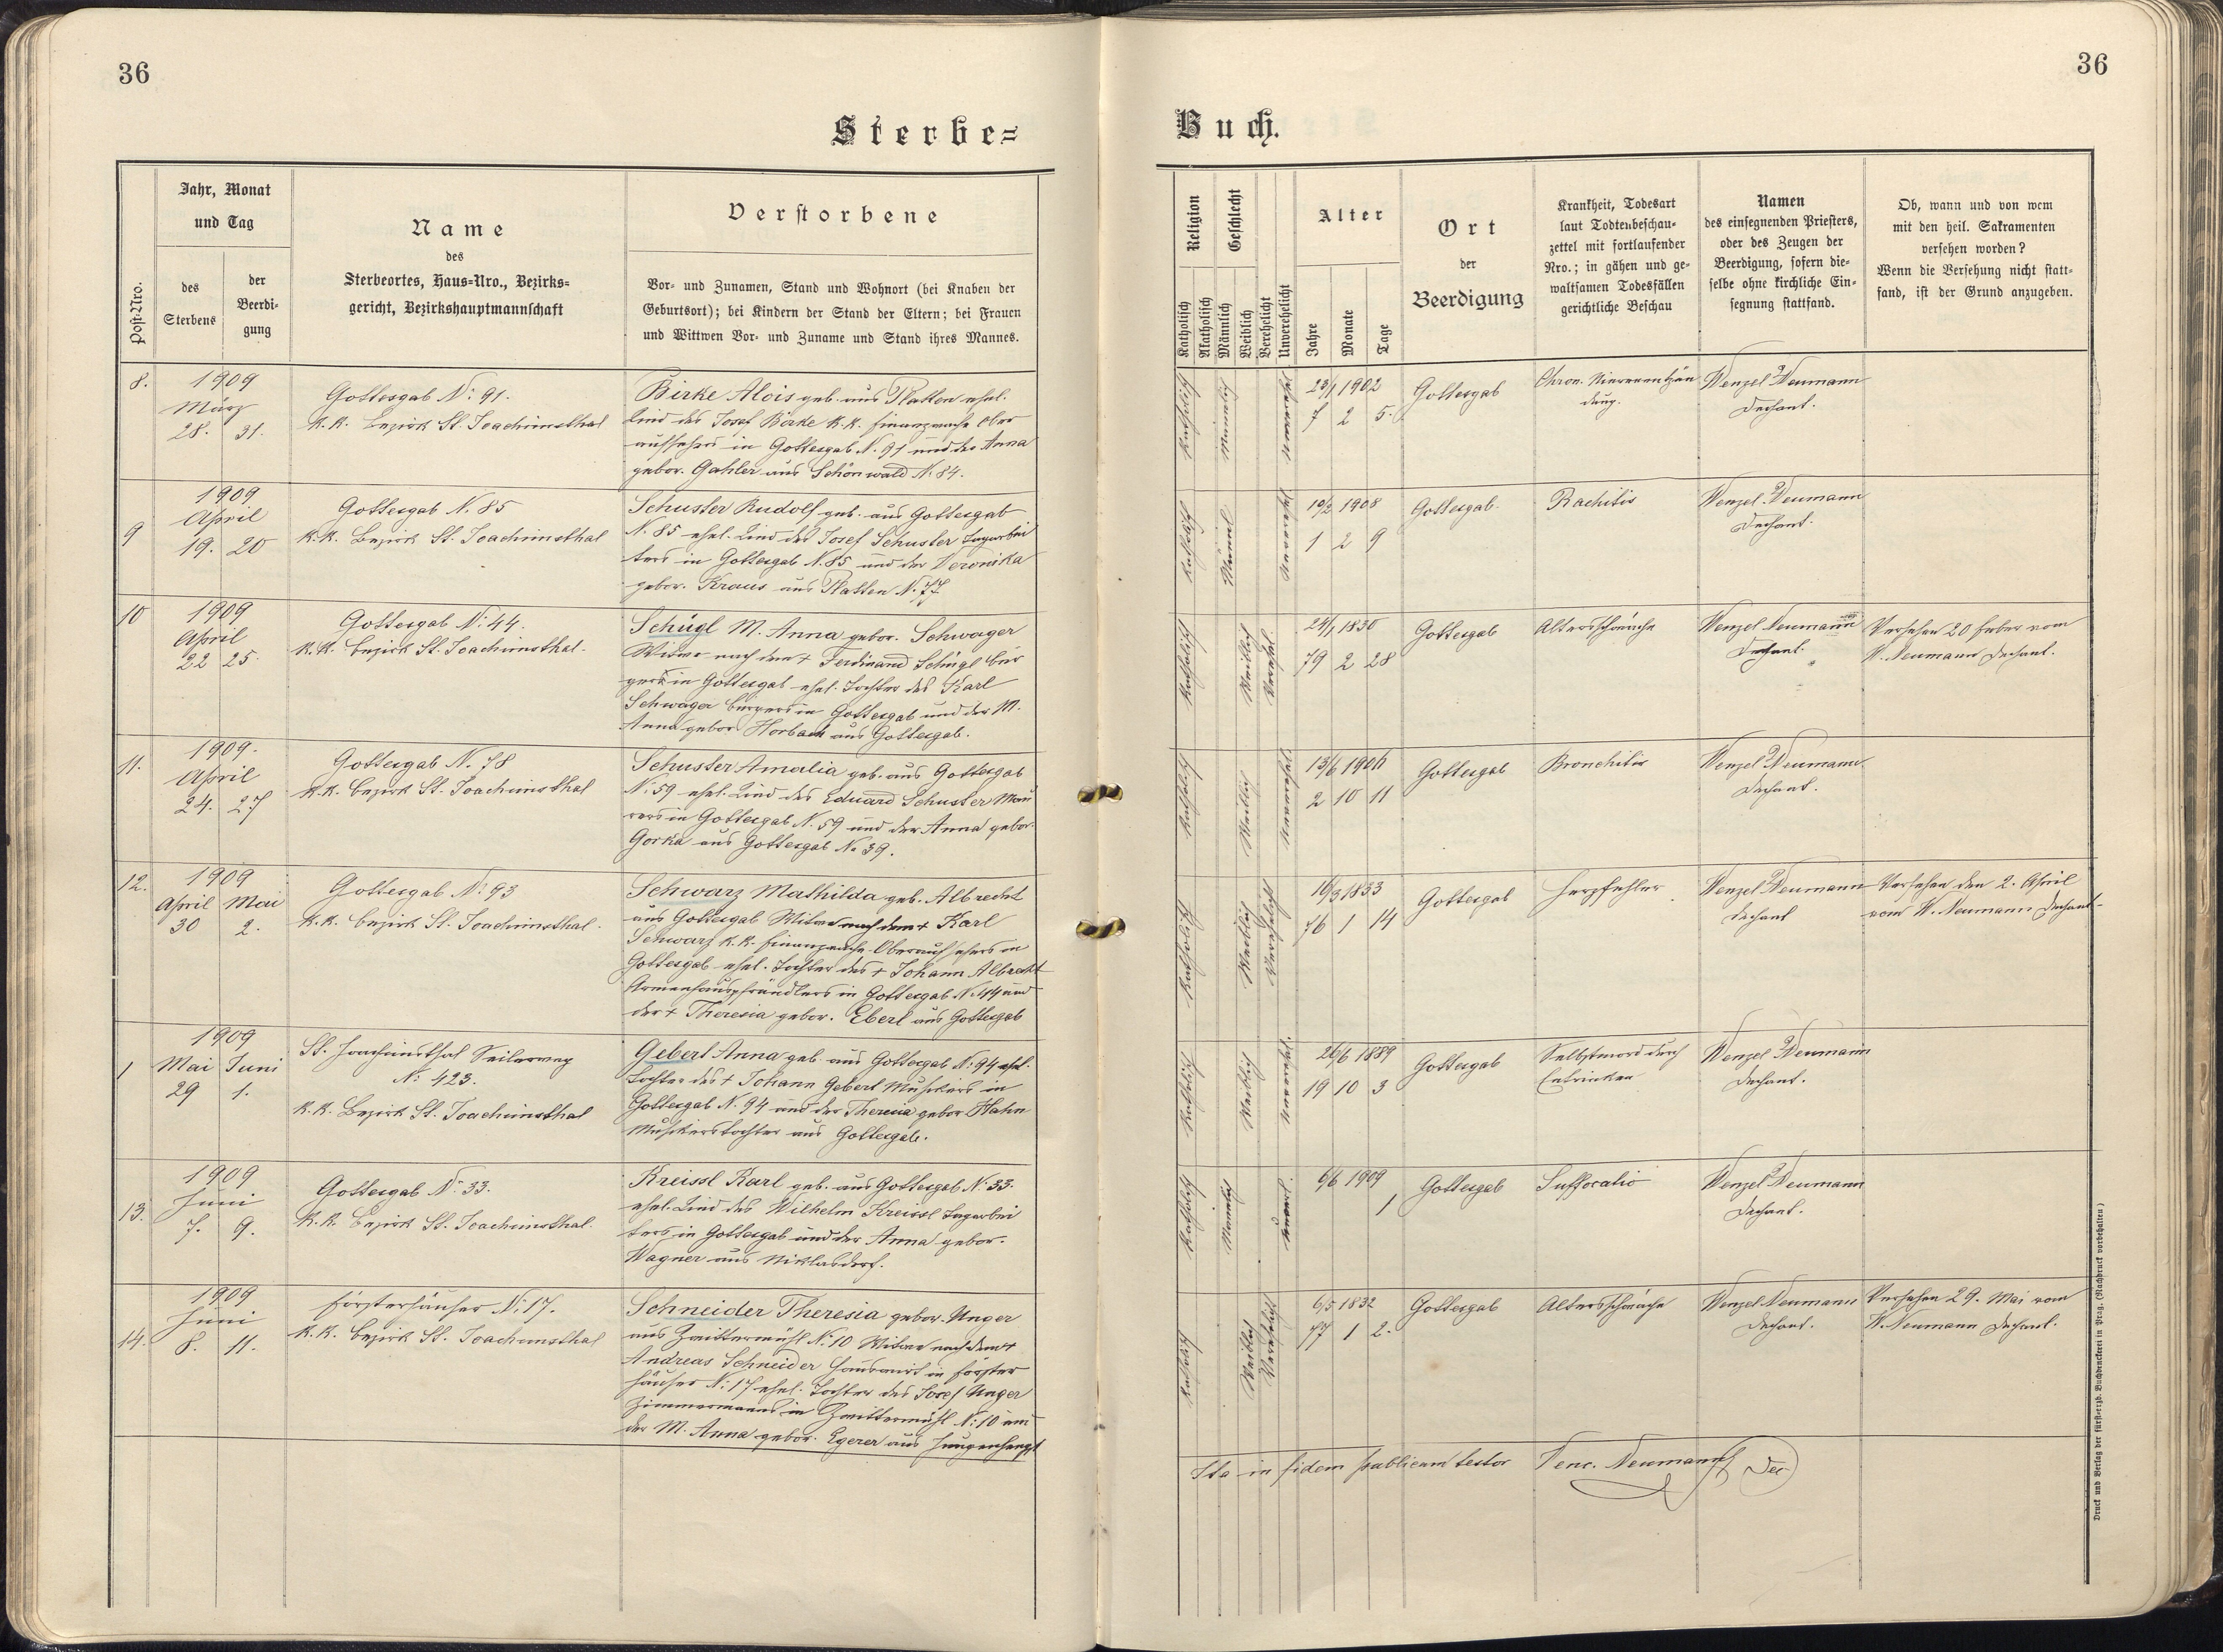 36
Sterbe=
Jahr, Monat
und Tag
Post-Nro.
des
Sterbens
der
Beerdi-
gung
Name
des
Sterbeortes, Haus-Nro., Bezirks-
gericht, Bezirkshauptmannschaft
Verstorbene
Vor- und Zunamen, Stand und Wohnort (bei Knaben der
Geburtsort); bei Kindern der Stand der Eltern; bei Frauen
und Wittwen Vor- und Zuname und Stand ihres Mannes.
8.
1909
März
28. 31.
Gottesgab N: 91.
K.K. Bezirk St. Joachimsthal
Birke Alois geb. aus Platten ehel.
Kind des Josef Birke K.K. Finanzwache Ober
aufsehers in Gottesgab N. 91 und der Anna
gebor. Gahler aus Schönwald N. 84.
9
1909
April
19. 20
Gottesgab N. 85
K.K. Bezirk St. Joachimsthal
Schuster Rudolf geb. aus Gottesgab
N. 85 ehel. Kind des Josef Schuster Tagarbei
ters in Gottesgab N. 85 und der Veronika
gebor. Kraus aus Platten N. 77.
10
1909
April
22 25.
Gottesgab N: 44.
K.K. Bezirk St. Joachimsthal.
Schügl M. Anna gebor. Schwager
Witwe nach dem + Ferdinand Schügl Bür
gers in Gottesgab ehel. Tochter des Karl
Schwager Bürgers in Gottesgab und der M.
Anna gebor. Horbach aus Gottesgab.
11.
1909.
April
24. 27
Gottesgab N. 78
K.K. Bezirk St. Joachimsthal
Schuster Amalia geb. aus Gottesgab
N: 59 ehel. Kind des Eduard Schuster Mau
rers in Gottesgab N. 59 und der Anna gebor.
Gorka aus Gottesgab No 39.
12.
1909
April Mai
30 2.
Gottesgab N: 93
K.K. Bezirk St. Joachimsthal.
Schwarz Mathilda geb. Albrecht
aus Gottesgab Witwe nach dem + Karl
Schwarz K.K. Finanzwache Oberaufsehers in
Gottesgab ehel. Tochter des + Johann Albrecht
Armenhauspfründlers in Gottesgab N. 44 und
der + Theresia gebor. Eberl aus Gottesgab
1
1909
Mai Juni
29 1.
St. Joachimsthal Seilerweg
N: 423.
K.K. Bezirk St. Joachimsthal
Gebert Anna geb. aus Gottesgab N: 94 ehel.
Tochter des + Johann Gebert Musikers in
Gottesgab N. 94 und der Theresia gebor. Hahn
Musikerstochter aus Gottesgab.
13.
1909
Juni
7. 9.
Gottesgab N: 33.
K.K. Bezirk St. Joachimsthal.
Kreissl Karl geb. aus Gottesgab N: 33.
ehel. Kind des Wilhelm Kreissl Tagarbei
ters in Gottesgab und der Anna gebor.
Wagner aus Niklasdorf.
14.
1909
Juni
8. 11.
Försterhäuser N: 17.
K.K. Bezirk St. Joachimsthal
Schneider Theresia gebor. Unger
aus Zwittermühl N: 10 Witwe nach dem +
Andreas Schneider Hauswirt in Förster
häuser N: 17 ehel. Tochter des Josef Unger
Zimmermanns in Zwittermühl N: 10 und
der M. Anna gebor. Egerer aus Jungenhengst
36
Buch.
Religion
Katholisch
Akatholisch
Geschlecht
Männlich
Weiblich
Verehelicht
Unverehelicht
Alter
Jahre
Monate
Tage
Ort
der
Beerdigung
Krankheit, Todesart
laut Todtenbeschau-
zettel mit fortlaufender
Nro.; in gähen und ge-
waltsamen Todesfällen
gerichtliche Beschau
Namen
des einsegnenden Priesters,
oder des Zeugen der
Beerdigung, sofern die-
selbe ohne kirchliche Ein-
segnung stattfand.
Ob, wann und von wem
mit den heil. Sakramenten
versehen worden?
Wenn die Versehung nicht statt-
fand, ist der Grund anzugeben.
Katholisch
Männlich
Unverehel.
23/1 1902
7 2 5.
Gottesgab
Chron. Nierenentzün
dung.
Wenzel Neumann
Dechant.
Katholisch
Männl.
Unverehel.
10/2 1908
1 2 9
Gottesgab.
Rachitis
Wenzel Neumann
Dechant.
Katholisch
Weiblich
Verehel.
24/1 1830
79 2 28
Gottesgab
Altersschwäche
Wenzel Neumann
Dechant.
Versehen 20 Feber vom
W. Neumann Dechant.
Katholisch
Weiblich
Unverehel.
13/6 1906
2 10 11
Gottesgab
Bronchitis
Wenzel Neumann
Dechant.
Katholisch
Weiblich
Verehelicht
16/3 1833
76 1 14
Gottesgab
Herzfehler
Wenzel Neumann
Dechant
Versehen den 2. April
vom W. Neumann Dechant.
Katholisch
Weiblich
Unverehel.
26/6 1889
19 10 3
Gottesgab
Selbstmord durch
Ertrinken
Wenzel Neumann
Dechant.
Katholisch
Männlich
Unverl.
6/6 1909
1
Gottesgab
Suffocatio
Wenzel Neumann
Dechant.
Katholisch
Weiblich
Verehelicht
6/5 1832
77 1 2.
Gottesgab
Altersschwäche
Wenzel Neumann
Dechant.
Versehen 29. Mai vom
W. Neumann Dechant.
Ita in fidem publicam testor Venc. Neumann Dec
Druck und Verlag der fürst-erzb. Buchdruckerei in Prag. (Nachdruck vorbehalten)